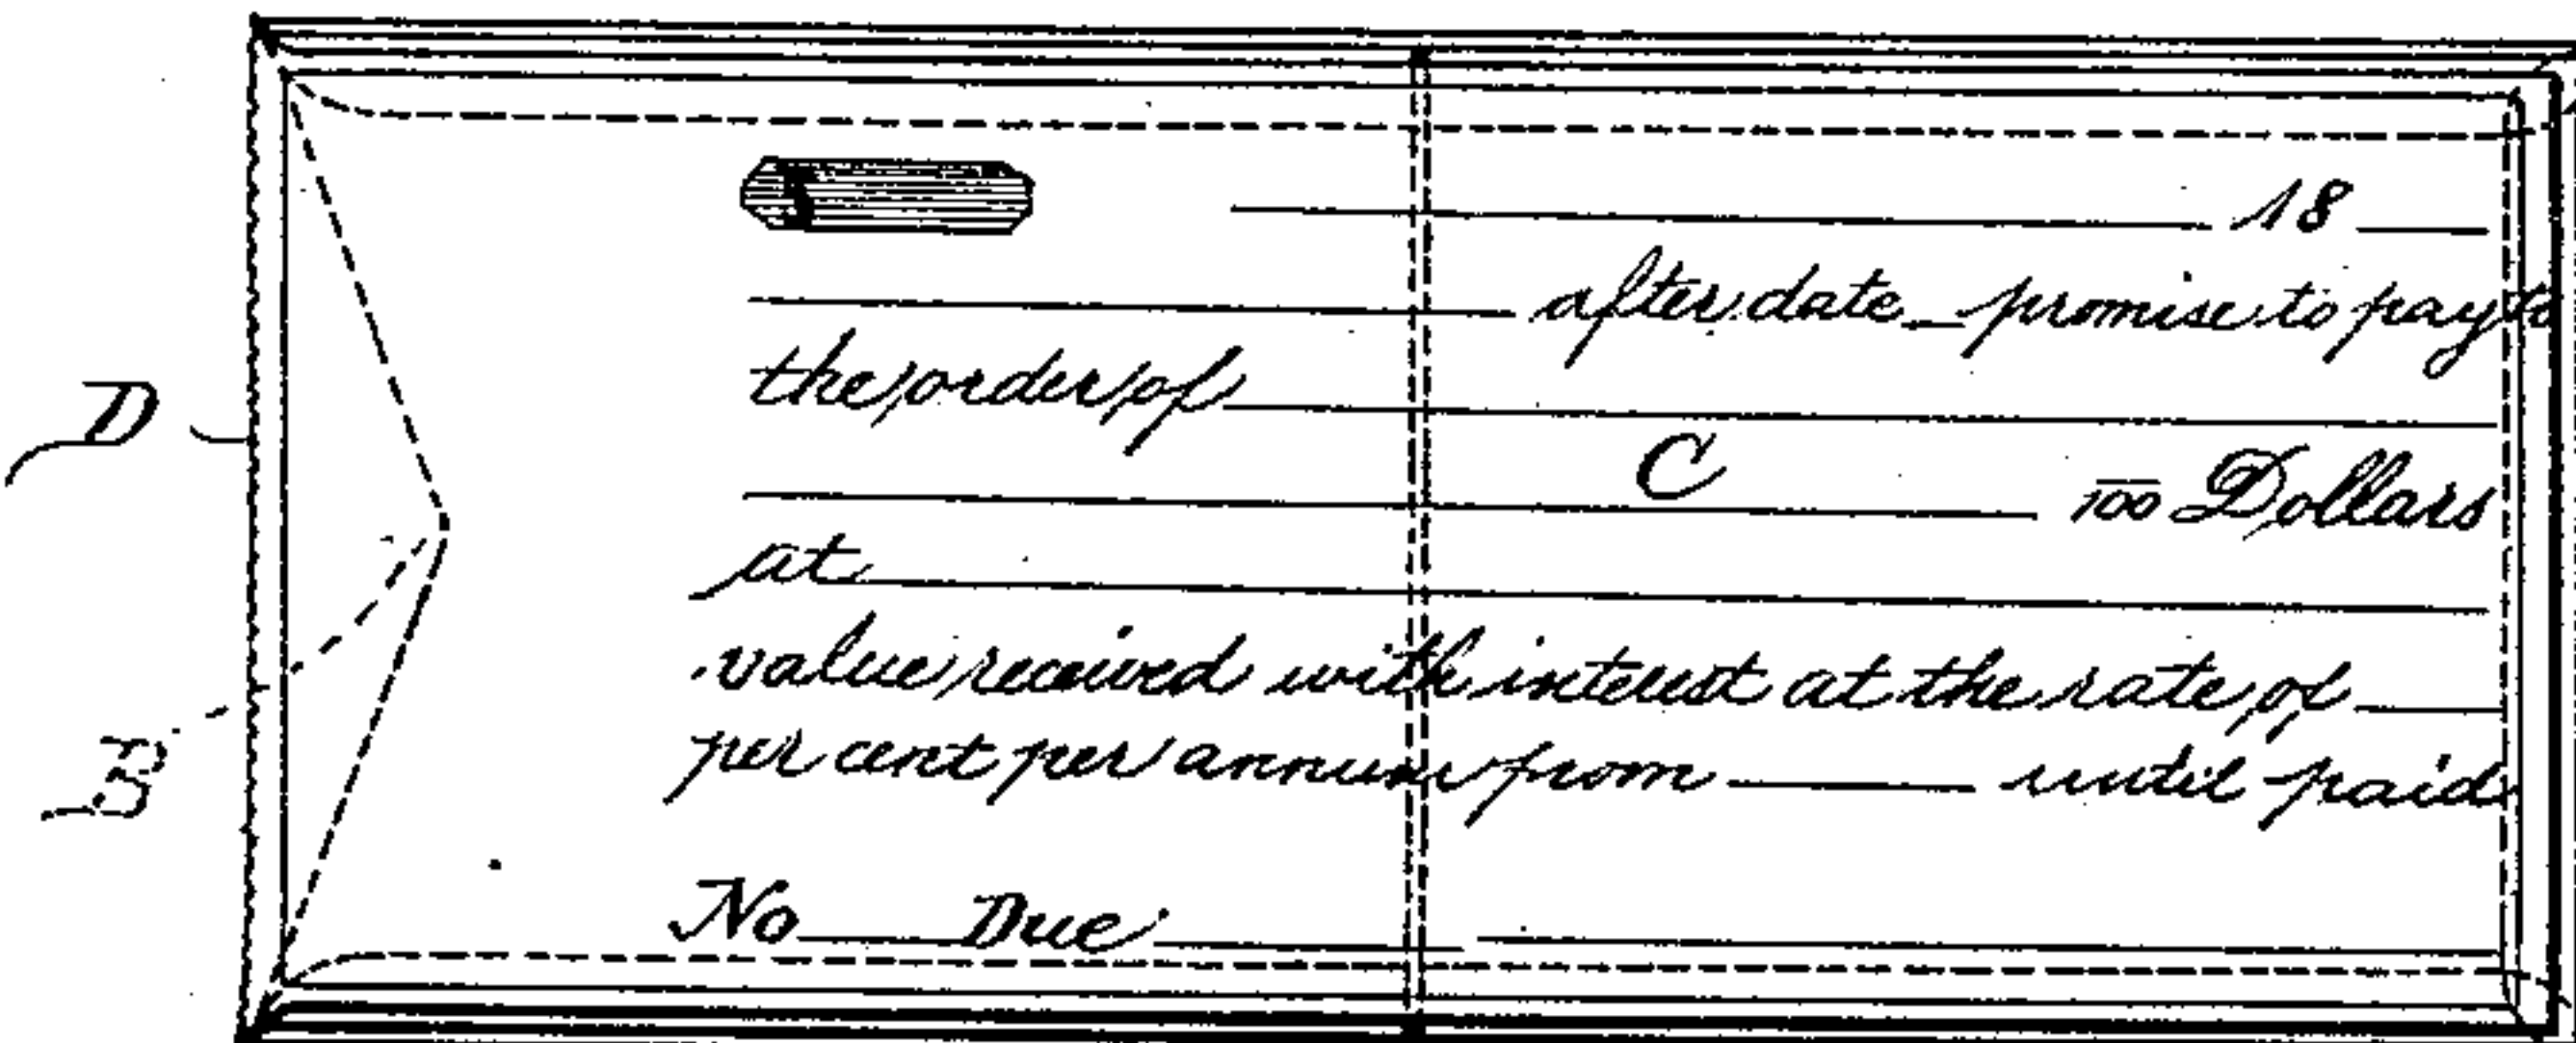 $
18
after date promise to pay to
the order of
C
100 Dollars
at
value received with interest at the rate of
per cent per annum from until paid
No Due
D
B